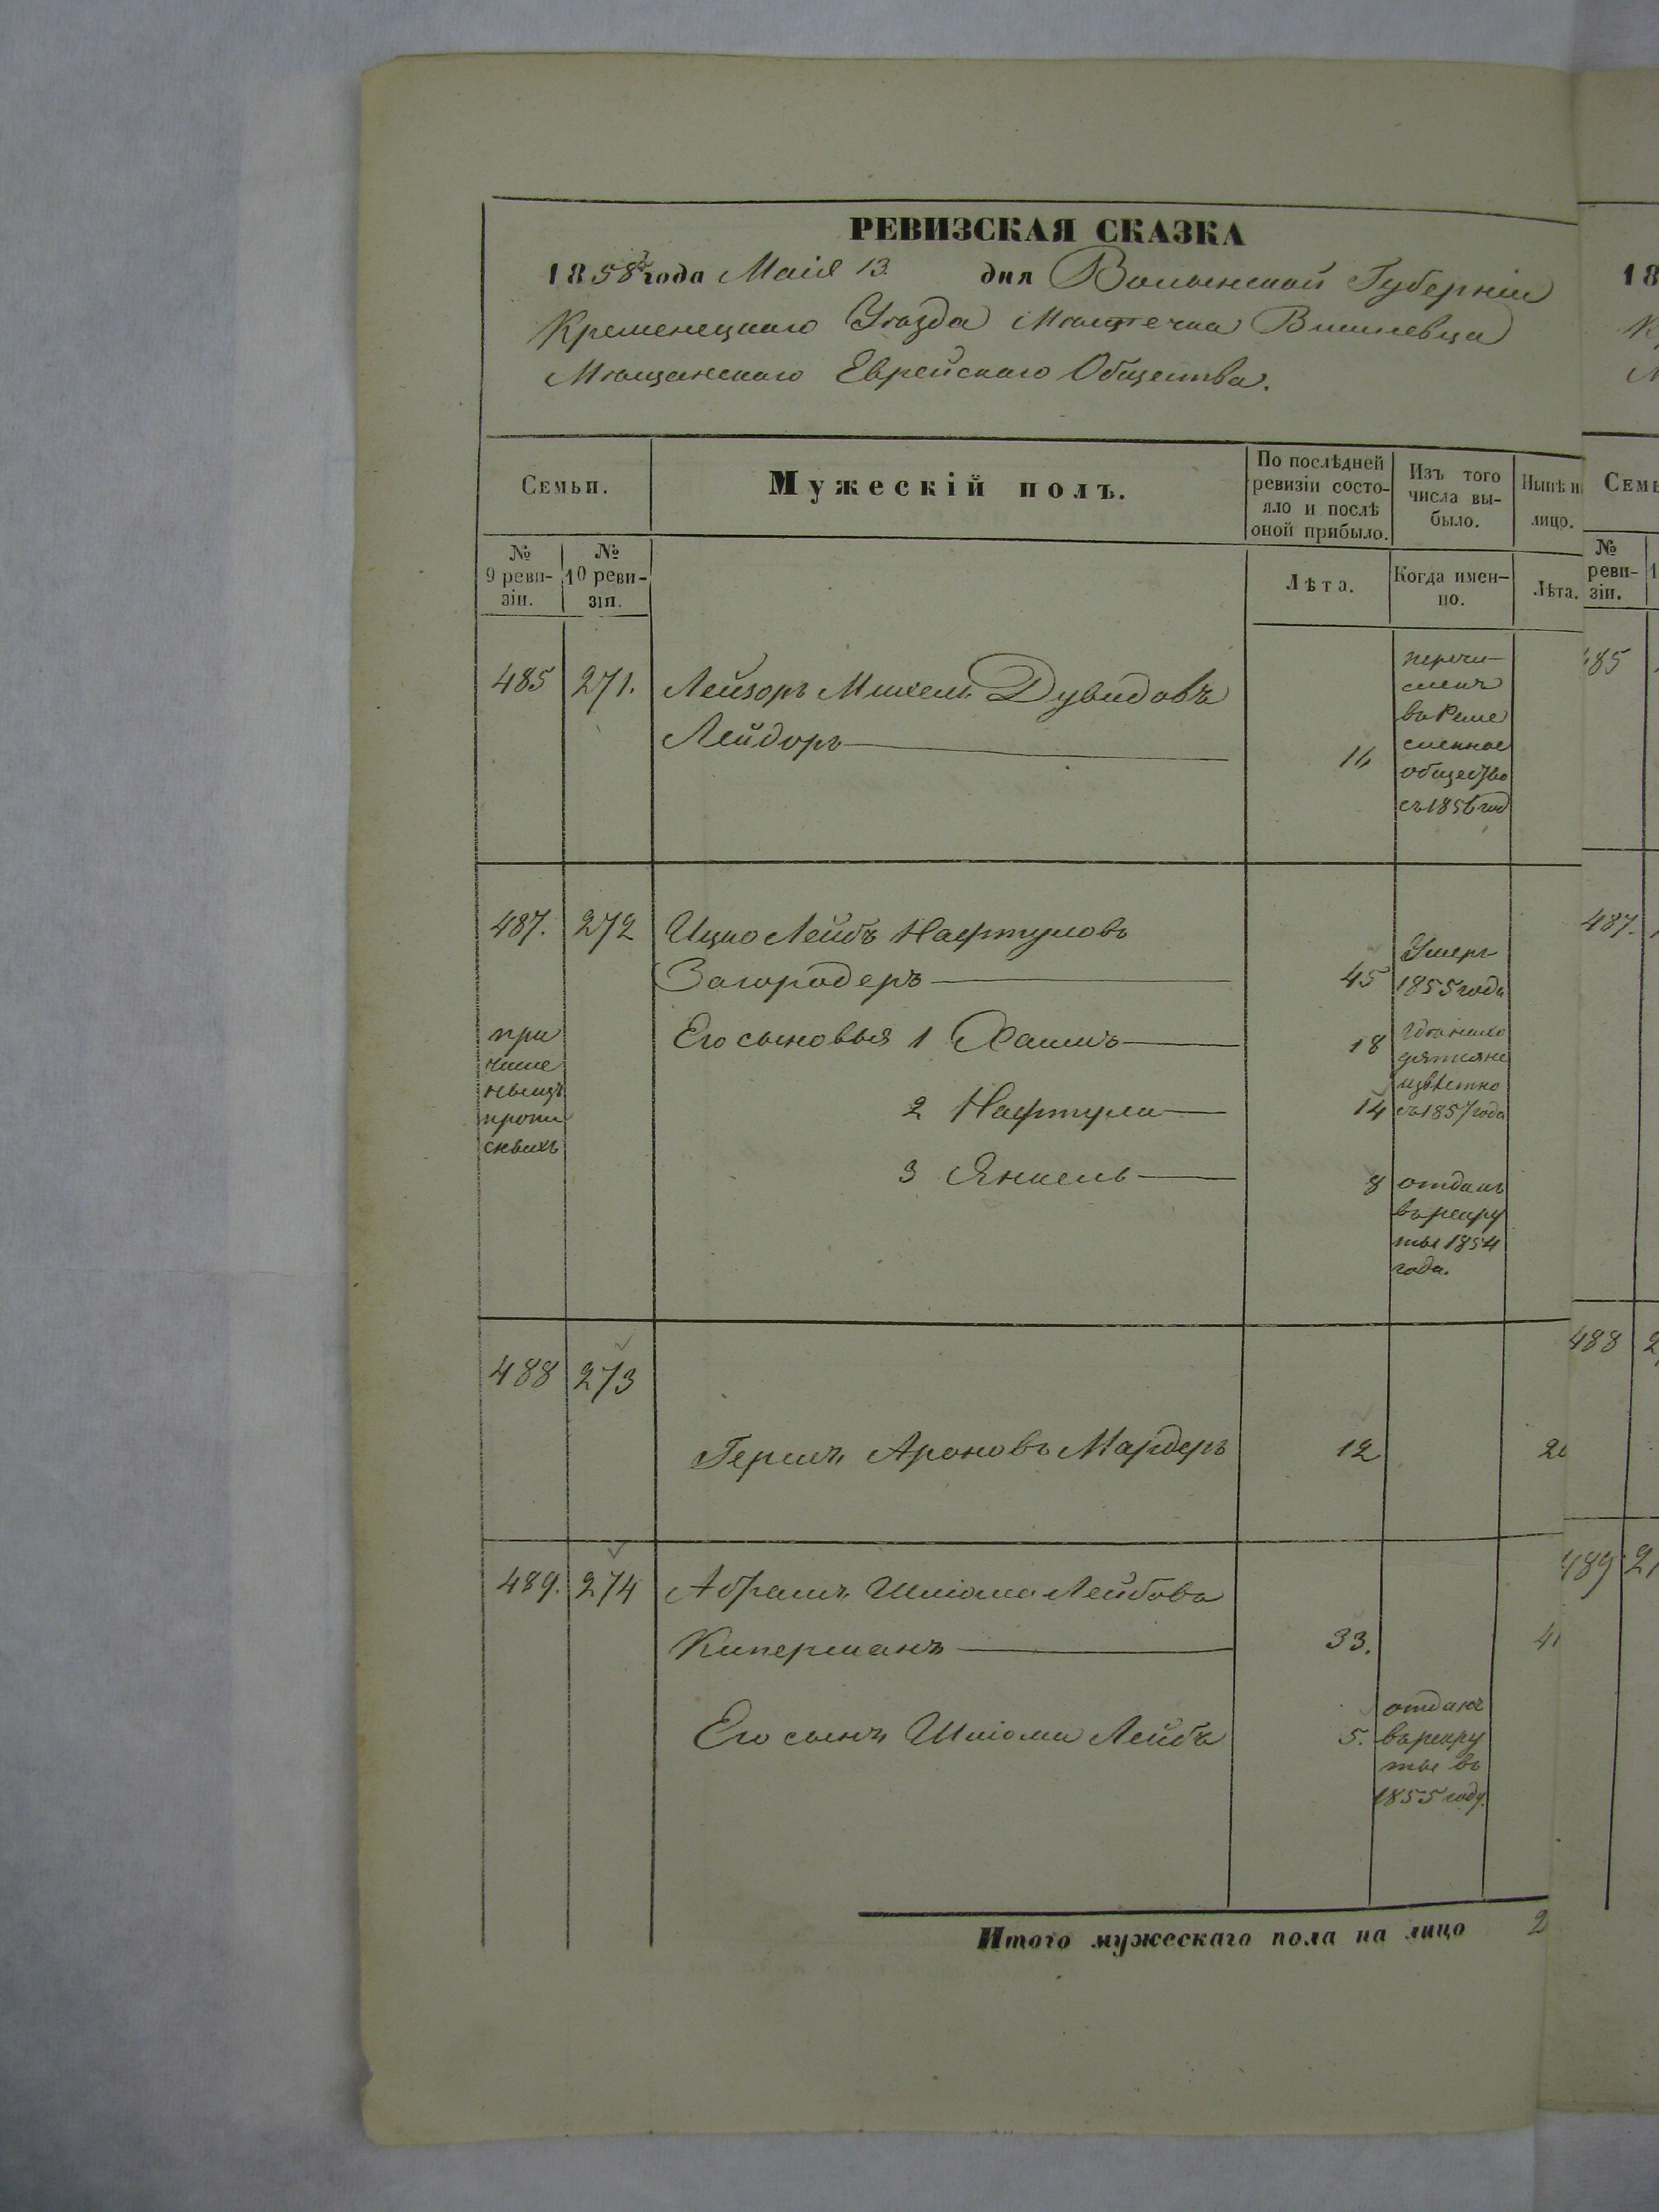 РЕВИЗСКАЯ СКАЗКА
1858го года Маія 13. дня Волынской Губерніи
Кременецкаго Уѣзда Мѣстечка Вишневца
Мѣщанскаго Еврейскаго Общества.
Семьи.
Мужескій полъ.
По послѣдней
ревизіи состо-
яло и послѣ
оной прибыло.
Изъ того
числа вы-
было.
Нынѣ н
лицо.
№
9 реви-
зіи.
№
10 реви-
зіи.
Лѣта.
Когда имен-
но.
Лѣта.
485 271. Лейзоръ Михель Дувидовъ
Лейдоръ 16
перечи-
сленъ
въ Реме
сленное
общество
съ 1856 год
487. 272 Ицко Лейбъ Нафтуловъ
Загородеръ 45
Умеръ
1855 года
при
числе
ныизъ
пропи
сныхъ
Его сыновья 1 Хаимъ 18
2 Нафтула 14
гдѣ нахо
дятся не
извѣстно
съ 1857 года
3 Янкель 8
отданъ
въ рекру
ты 1854
года.
488 273
Гершъ Ароновъ Мардеръ 12
489. 274 Абрамъ Шліома Лейбовъ
Киперманъ 33.
Его сынъ Шліома Лейбъ 5.
отданъ
въ рекру
ты въ
1855 году.
Итого мужескаго пола на лицо 2
18
Семь
№
реви-
зіи.
485
487.
488
489